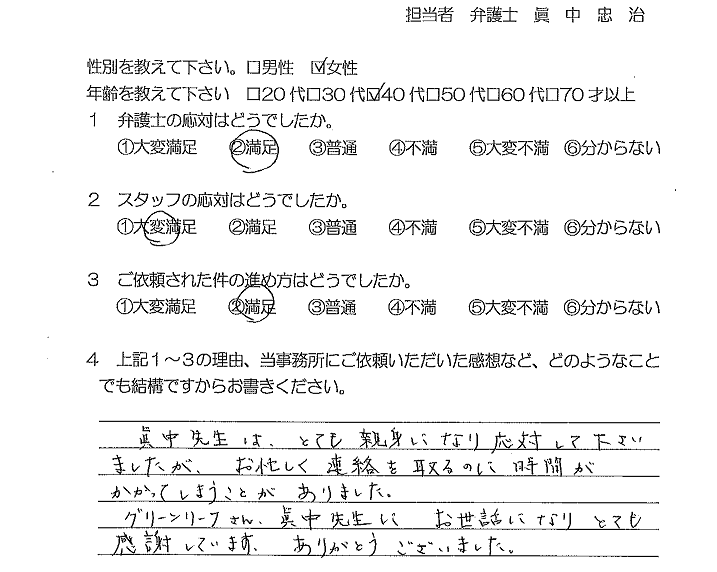 担当者 弁護士 眞中忠治
性別を教えて下さい。☐男性 ☑女性
年齢を教えて下さい ☐20代☐30代☑40代☐50代☐60代☐70才以上
1 弁護士の応対はどうでしたか。
①大変満足 ②満足 ③普通 ④不満 ⑤大変不満 ⑥分からない
2 スタッフの応対はどうでしたか。
①大変満足 ②満足 ③普通 ④不満 ⑤大変不満 ⑥分からない
3 ご依頼された件の進め方はどうでしたか。
①大変満足 ②満足 ③普通 ④不満 ⑤大変不満 ⑥分からない
4 上記1~3の理由、当事務所にご依頼いただいた感想など、どのようなこと
でも結構ですからお書きください。
眞中先生は、とても親身になり応対して下さい
ましたが、お忙しく連絡を取るのに時間が
かかってしまうことがありました。
グリーンリーフさん、眞中先生にお世話になりとても
感謝しています。ありがとうございました。